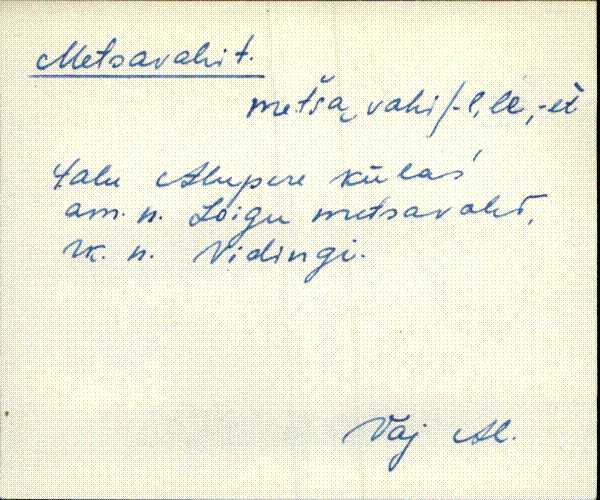 Metsavahi t.
metśa͔vahi/-l, le, -et
Talu Alupere külas
am. n. Loigu metsavaht,
rk. n. Vidingi.
Vaj Al.